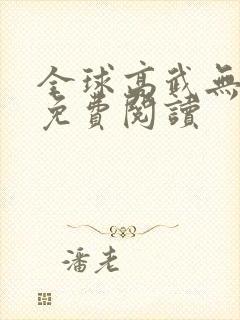 全球高武無
免費閱讀
潘老